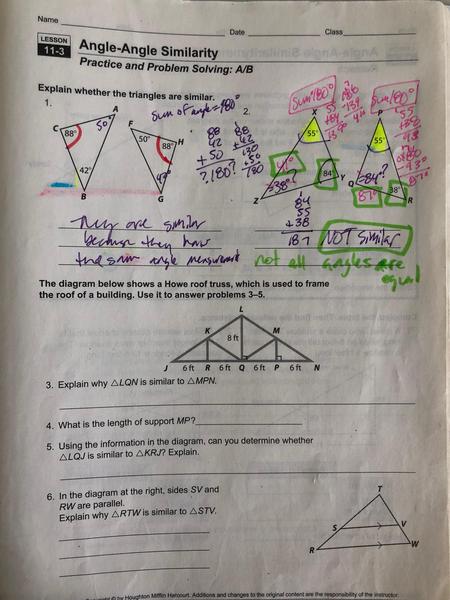 Name
Date
Class
LESSON
11-3
Angle-Angle Similarity
Practice and Problem Solving: A/B
Explain whether the triangles are similar.
1.
sum of angle = 180°
2.
sum 180°
sum 180°
A
C
88°
50°
42°
B
F
50°
H
88°
G
88
42
+ 50
? 180!
88
+ 42
130
+ 50
180
X
55°
41°
38°
84°
Z
Y
P
55°
84°?
87°
38°
Q
R
84
55
+ 38
187
They are similar
because they have
the same angle measurement
NOT Similar
not all angles are
equal
The diagram below shows a Howe roof truss, which is used to frame
the roof of a building. Use it to answer problems 3–5.
L
K
8 ft
M
J 6 ft R 6 ft Q 6 ft P 6 ft N
3. Explain why △LQN is similar to △MPN.
4. What is the length of support MP?
5. Using the information in the diagram, can you determine whether
△LQJ is similar to △KRJ? Explain.
6. In the diagram at the right, sides SV and
RW are parallel.
Explain why △RTW is similar to △STV.
T
S
V
R
W
© by Houghton Mifflin Harcourt. Additions and changes to the original content are the responsibility of the instructor.